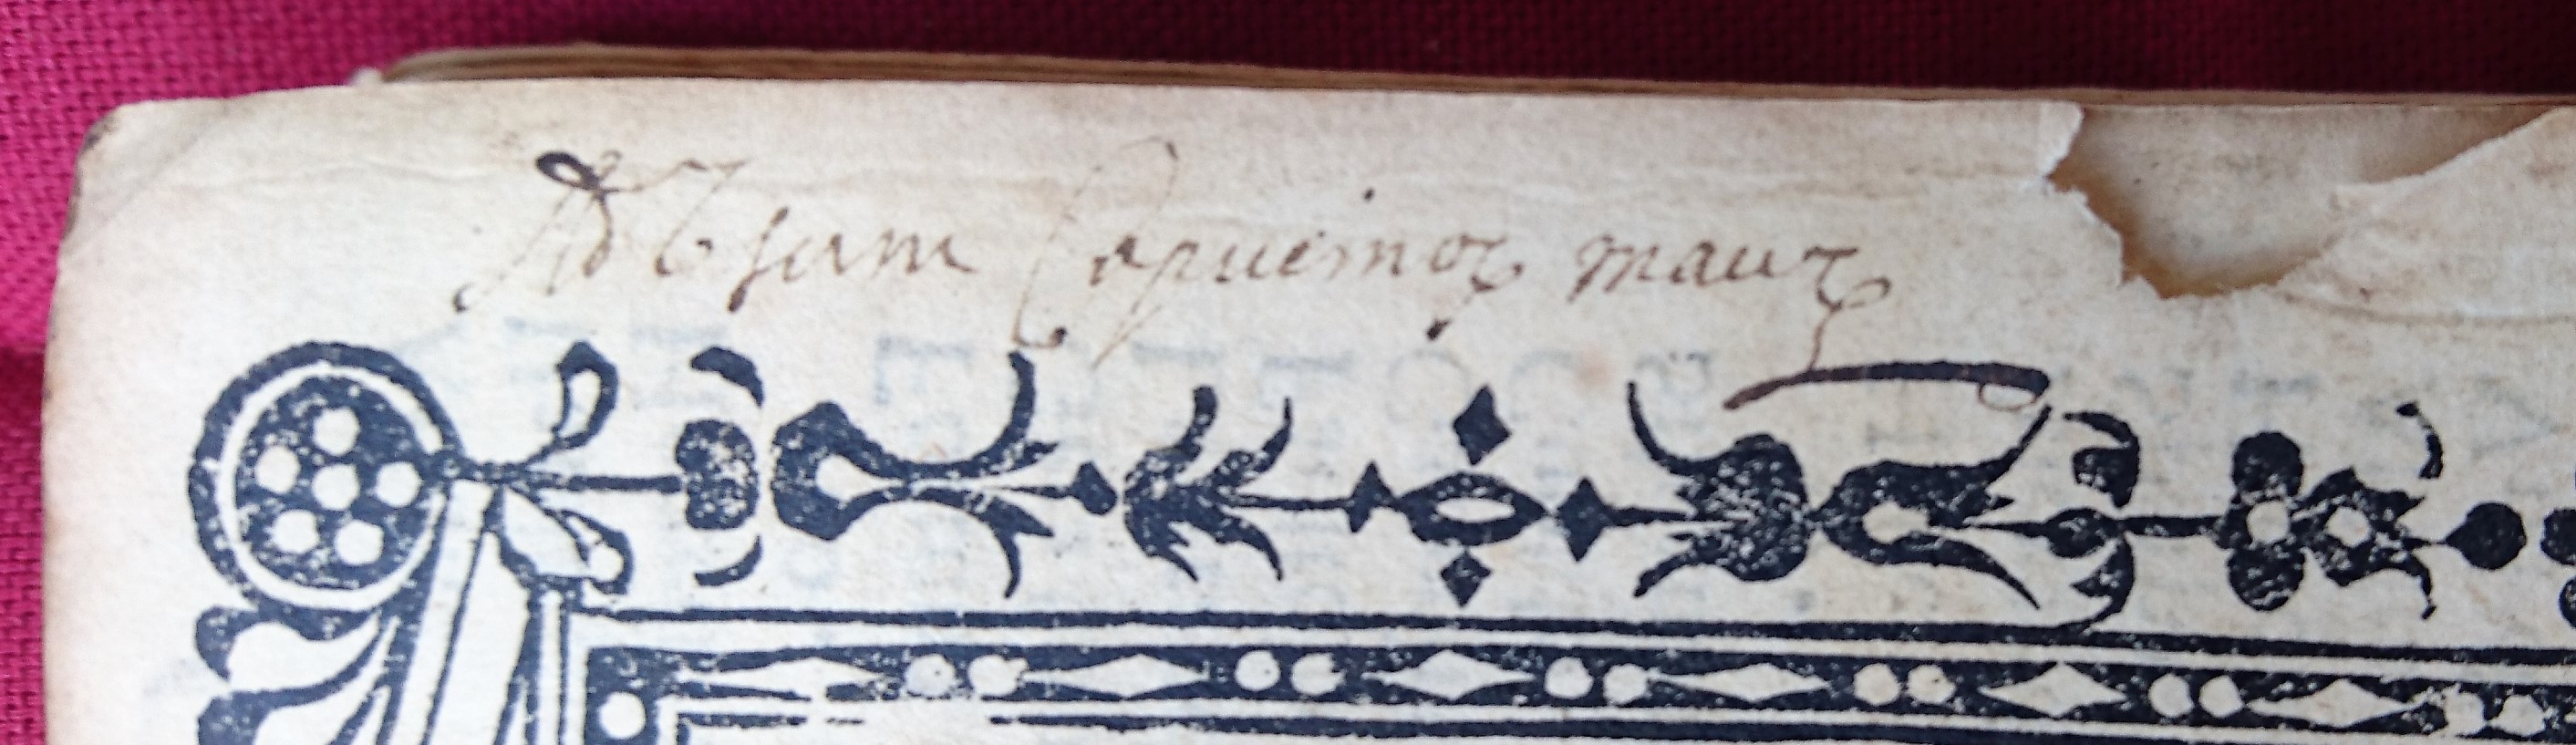 Ad Usum Capucinoꝝ mauꝝ